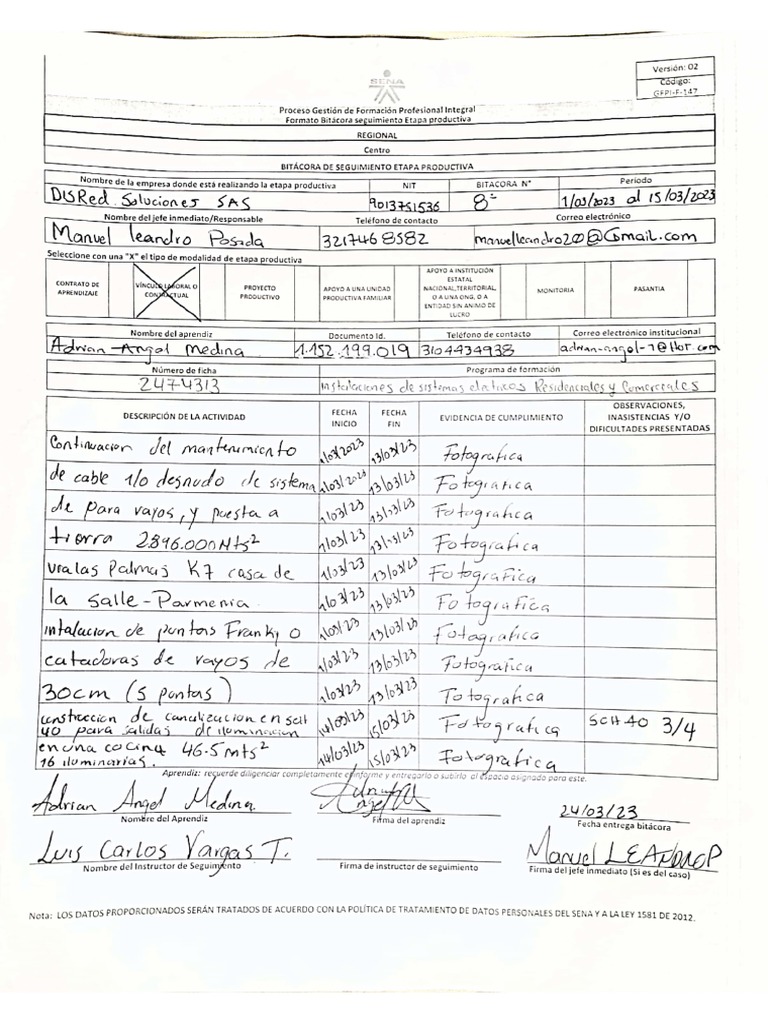 Versión: 02
Código:
GFPI-F-147
SENA
Proceso Gestión de Formación Profesional Integral
Formato Bitácora seguimiento Etapa productiva
REGIONAL
Centro
BITÁCORA DE SEGUIMIENTO ETAPA PRODUCTIVA
Nombre de la empresa donde está realizando la etapa productiva NIT BITACORA N° Período
DISRed Soluciones SAS 9013751536 8= 1/03/2023 al 15/03/2023
Nombre del jefe inmediato/Responsable Teléfono de contacto Correo electrónico
Manuel leandro Posada 3217468582 manuelleandro200@Gmail.com
Seleccione con una "X" el tipo de modalidad de etapa productiva
CONTRATO DE APRENDIZAJE VÍNCULO LABORAL O CONTRACTUAL PROYECTO PRODUCTIVO APOYO A UNA UNIDAD PRODUCTIVA FAMILIAR APOYO A INSTITUCIÓN ESTATAL NACIONAL,TERRITORIAL, O A UNA ONG, O A ENTIDAD SIN ANIMO DE LUCRO MONITORIA PASANTIA
Nombre del aprendiz Documento Id. Teléfono de contacto Correo electrónico institucional
Adrian Angel Medina 1.152.199.019 3104434938 adrian-angel-7@Hot.com
Número de ficha Programa de formación
2474313 Instalaciones de sistemas electricos Residenciales y Comerciales
DESCRIPCIÓN DE LA ACTIVIDAD FECHA INICIO FECHA FIN EVIDENCIA DE CUMPLIMIENTO OBSERVACIONES, INASISTENCIAS Y/O DIFICULTADES PRESENTADAS
Continuacion del mantenimiento 1/03/2023 13/03/23 Fotografica
de cable 1/0 desnudo de sistema 1/03/2023 13/03/23 Fotografica
de para rayos, y puesta a 1/03/23 13/03/23 Fotografica
tierra 2.896.000 Mts² 1/03/23 13/03/23 Fotografica
Palmas K7 casa de 1/03/23 13/03/23 Fotografica
la Salle-Parmenia 1/03/23 13/03/23 Fotografica
intalacion de puntas Franki, o 1/03/23 13/03/23 Fotografica
catadoras de rayos de 1/03/23 13/03/23 Fotografica
30cm (5 puntas) 1/03/23 13/03/23 Fotografica
construccion de canalizacion en sch 40 para salidas de iluminacion 14/03/23 15/03/23 Fotografica SCH 40 3/4
en una cocina 46.5 mts² 16 iluminarias. 14/03/23 15/03/23 Fotografica
Aprendiz: recuerde diligenciar completamente el informe y entregarlo o subirlo al espacio asignado para este.
Adrian Angel Medina 24/03/23
Nombre del Aprendiz Firma del aprendiz Fecha entrega bitácora
Luis Carlos Vargas T. Manuel LEANDRO P
Nombre del Instructor de Seguimiento Firma de instructor de seguimiento Firma del jefe inmediato (Si es del caso)
Nota: LOS DATOS PROPORCIONADOS SERÁN TRATADOS DE ACUERDO CON LA POLÍTICA DE TRATAMIENTO DE DATOS PERSONALES DEL SENA Y A LA LEY 1581 DE 2012.